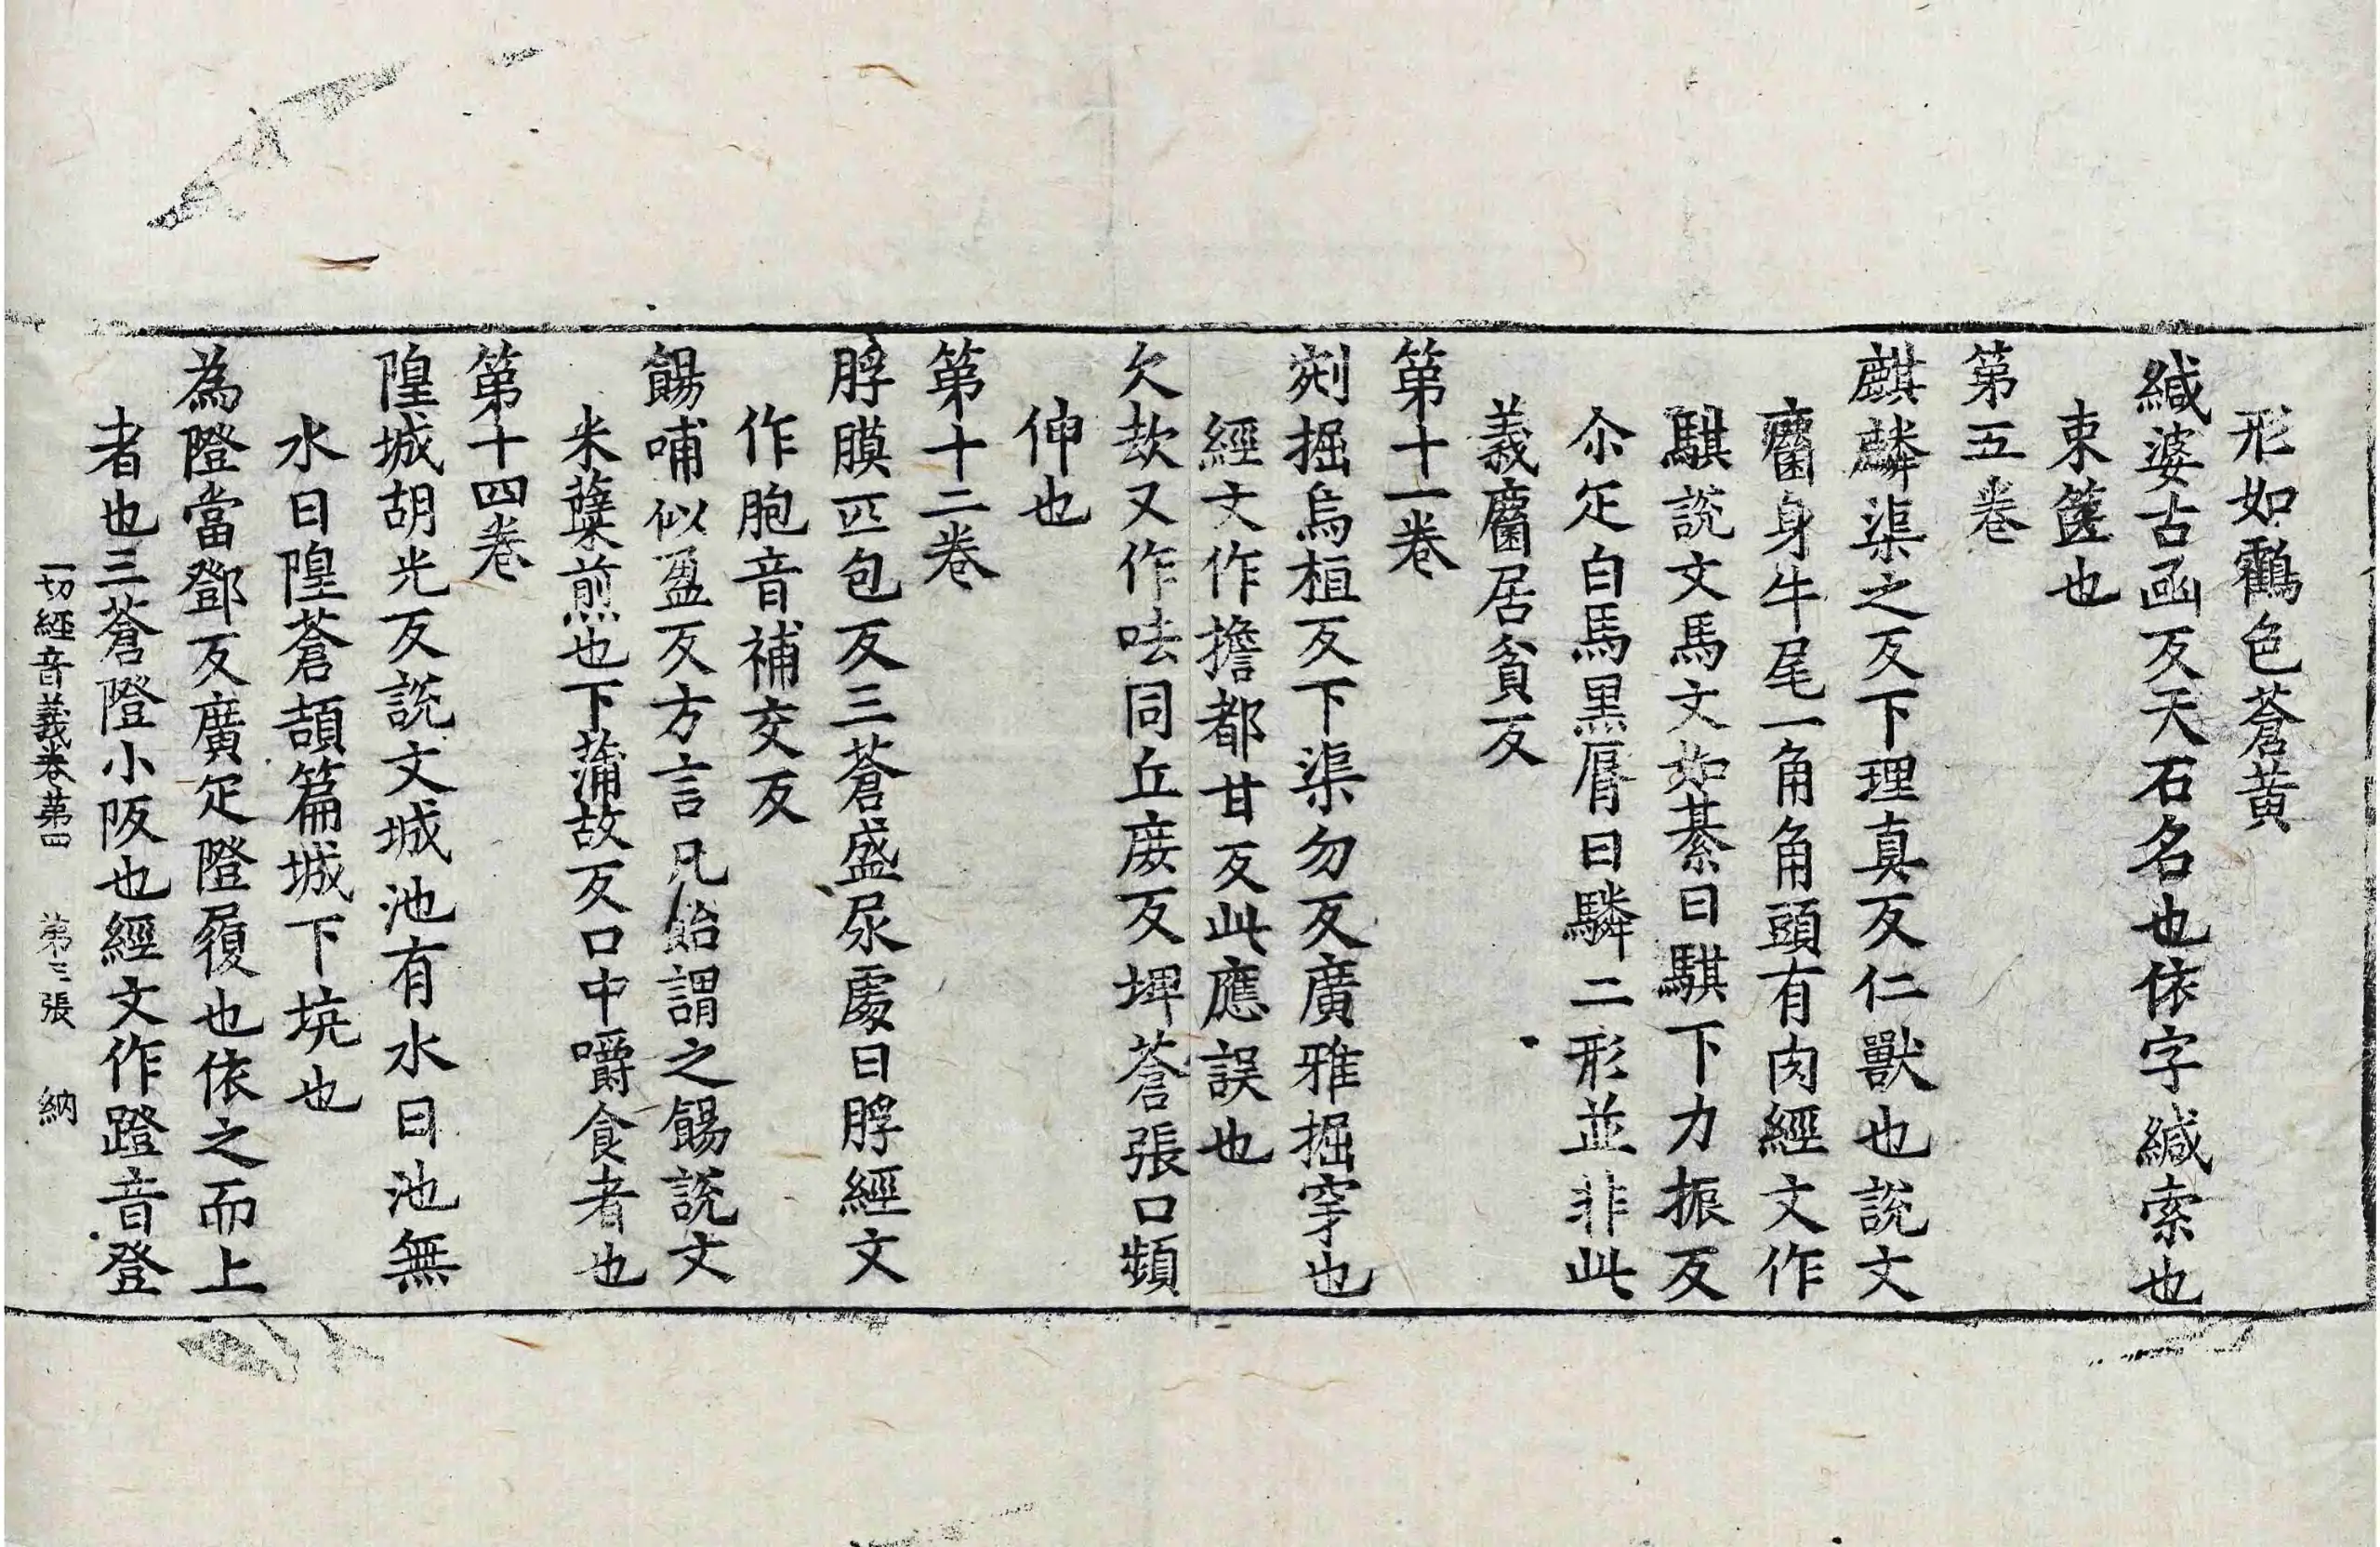 形如鸖色蒼黃
緘婆古函反天石名也依字緘索也
束篋也
第五卷
麒麟渠之反下理真反仁獸也說文
麕身牛尾一角角頭有肉經文作
騏說文馬文如綦曰騏下力振反
尒疋白馬黑脣曰驎二形並非此
義麕居貧反
第十一卷
剜掘烏桓反下渠勿反廣雅掘穿也
經文作擔都甘反此應誤也
欠㰦又作呿同丘庶反埤蒼張口頻
伸也
第十二卷
脬膜匹包反三蒼盛尿處曰脬經文
作胞音補交反
餳哺似盈反方言凡飴謂之餳說文
米糱煎也下蒲故反口中嚼食者也
第十四卷
隍城胡光反說文城池有水曰池無
水曰隍蒼頡篇城下坑也
為隥當鄧反廣疋隥履也依之而上
者也三蒼隥小阪也經文作蹬音登
一切經音義卷第四 第三張 納